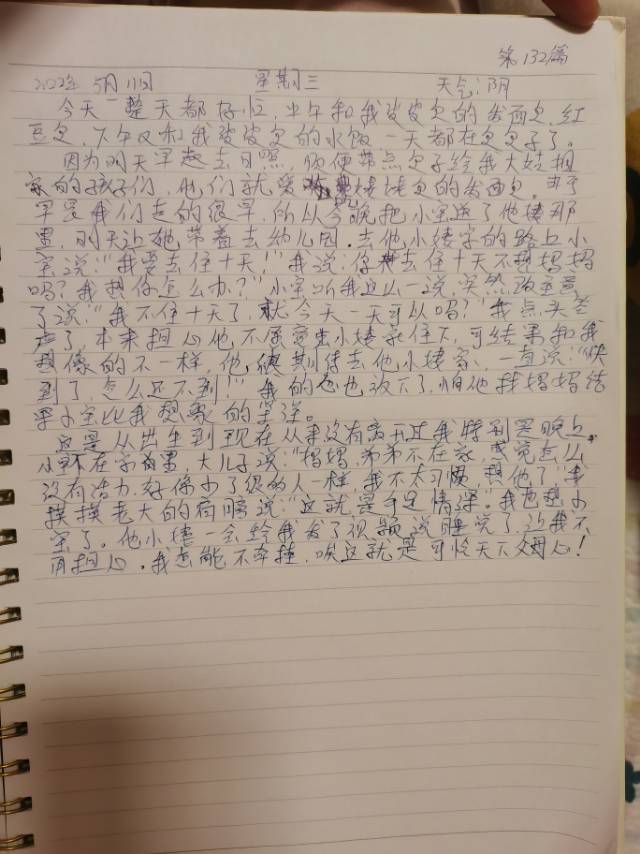 第132篇
2022年 5月11日 星期三 天气:阴
今天一整天都好忙,上午和我婆婆包的发面包,红
豆包,下午又和我婆婆包的水饺一天都在包包子了。
因为明天早起去日照,顺便带点包子给我大姑姐
家的孩子们,他们就爱 姥姥包的发面包。由于
早晨我们走的很早,所以今晚把小宝送了他姨那
里,明天让她带着去幼儿园。去他小姨家的路上小
宝说:“我要去住十天!”我说:你去住十天不想妈妈
吗?我想你怎么办?”小宝听我这么一说,突然改主意
了说:“我不住十天了,就今天一天可以吗?”我点头答
应了,本来担心他不愿意在小姨家住下,可结果和我
想像的不一样,他很期待去他小姨家,一直说:“快
到了,怎么还不到!”我的心也放下了,怕他找妈妈结
果小宝比我想象的坚强。
这是从出生到现在从来没有离开过我特别是晚上。
小宝不在家里,大儿子说:“妈妈,弟弟不在家,感觉怎么
没有活力,好像少了很多人一样,我不太习惯,想他了”我
摸摸老大的肩膀说:“这就是手足情深”。我也想小
宝了。他小姨一会给我发了视频,说睡觉了,让我不
用担心。我怎能不牵挂,唉这就是可怜天下父母心!